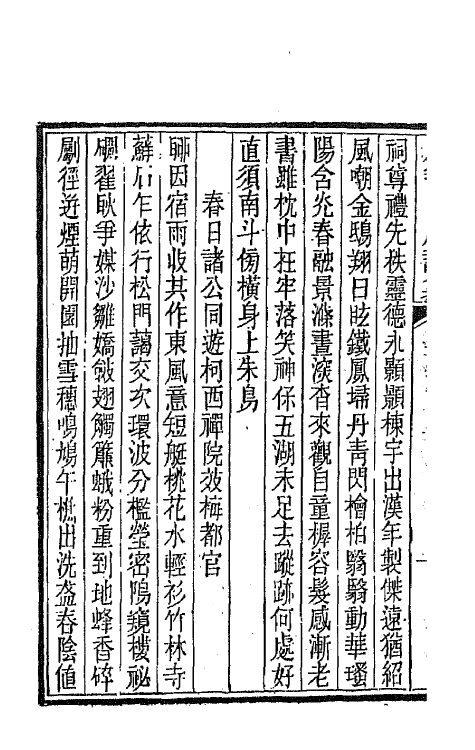 祠尊禮先秩靈德永顥顥棟宇出漢年製傑遠猶紹
風嘲金鴟翔日眩鐵鳳埽丹靑閃檜柏翳翳動華璚
陽含炎春融景滌晝淡杳來觀自童樨容髮感漸老
書雖枕中在牢落笑神係五湖未足去蹤跡何處好
直須南斗傍橫身上朱鳥
春日諸公同遊柯西禪院效梅都官
聊因宿雨收共作東風意短艇桃花水輕衫竹林寺
蘚石乍依行松門藹交次環波分檻瑩密陽鏡樓祕
磵翟耿爭媒沙雛嬌斂翅觸簾蛾粉重到地蜂香碎
劚徑迸煙萌開園抽雪穗鳴鳩午樵出洗盋春陰值